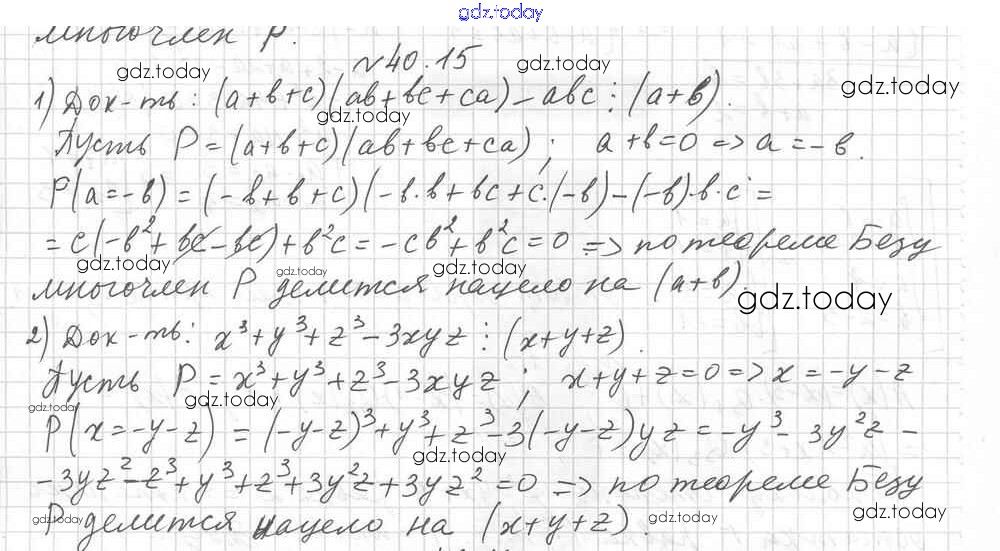 gdz.today
многочлен P.
№40.15
gdz.today gdz.today
1) Док-ть: (a+b+c)(ab+bc+ca)-abc ⋮ (a+b).
gdz.today
gdz.today
Пусть P=(a+b+c)(ab+bc+ca); a+b=0 => a=-b.
P(a=-b) = (-b+b+c)(-b·b+bc+c·(-b)-(-b)·b·c =
= c(-b²+bc-bc)+b²c = -cb²+b²c=0 => по теореме Безу
gdz.today gdz.today gdz.today
многочлен P делится нацело на (a+b).
gdz.today
2) Док-ть: x³+y³+z³-3xyz ⋮ (x+y+z).
Пусть P=x³+y³+z³-3xyz; x+y+z=0 => x=-y-z
gdz.today gdz.today
P(x=-y-z) = (-y-z)³+y³+z³-3(-y-z)yz = -y³-3y²z-
gdz.today
-3yz²-z³+y³+z³+3y²z+3yz²=0 => по теореме Безу
P делится нацело на (x+y+z).
gdz.today gdz.today gdz.today